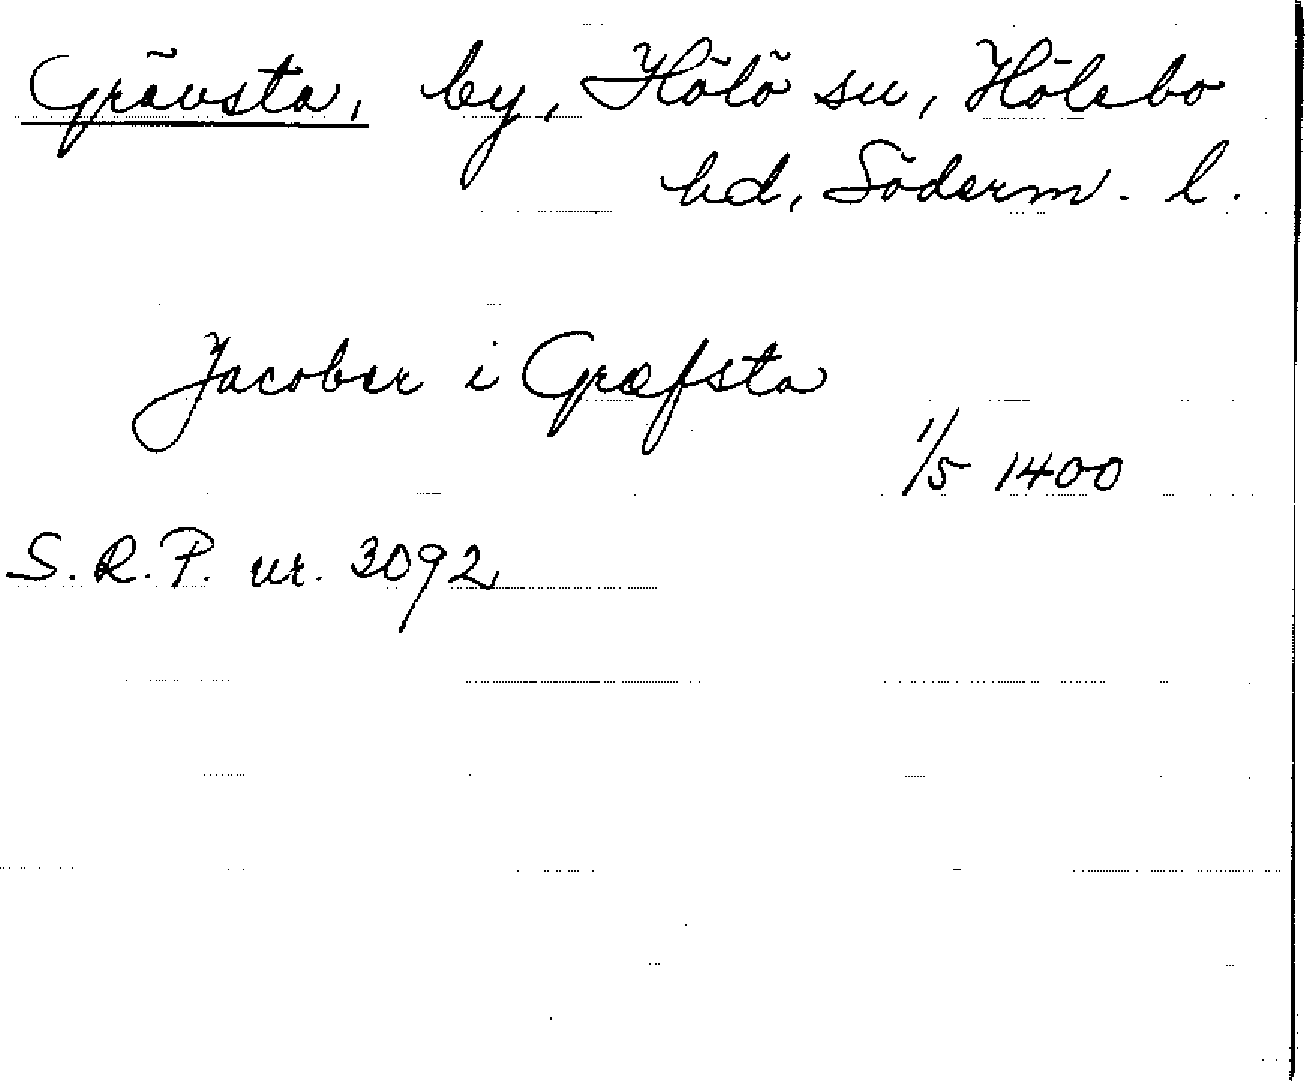 Grävsta, by, Hölö sn, Hölebo
hd, Söderm. l.
Jacober i Græfsta
1/5 1400
S.R.P. nr. 3092